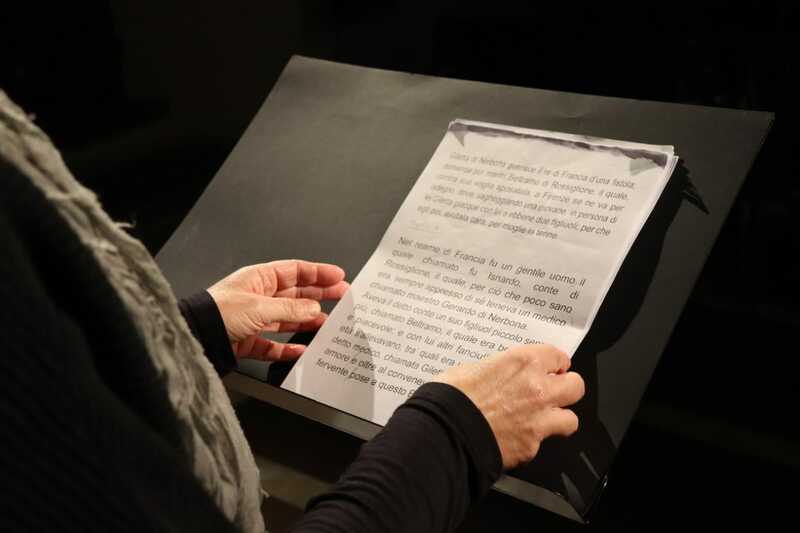 Giletta di Nerbona guerisce il re di Francia d'una fistola;
domanda per marito Beltramo di Rossiglione, il quale,
contra sua voglia sposatala, a Firenze se ne va per
isdegno; dove vagheggiando una giovane, in persona di
lei Giletta giacque con lui e ebbene due figliuoli; per che
egli poi, avutala cara, per moglie la tenne.
Nel reame di Francia fu un gentile uomo il
quale chiamato fu Isnardo, conte di
Rossiglione, il quale, per ciò che poco sano
era, sempre appresso di sé teneva un medico
chiamato maestro Gerardo di Nerbona.
Aveva il detto conte un suo figliuol piccolo
più, chiamato Beltramo, il quale era
e piacevole; e con lui altri
età s'allevavano, tra' quali era
detto medico, chiamata
amore e oltre al
fervente pose a questo